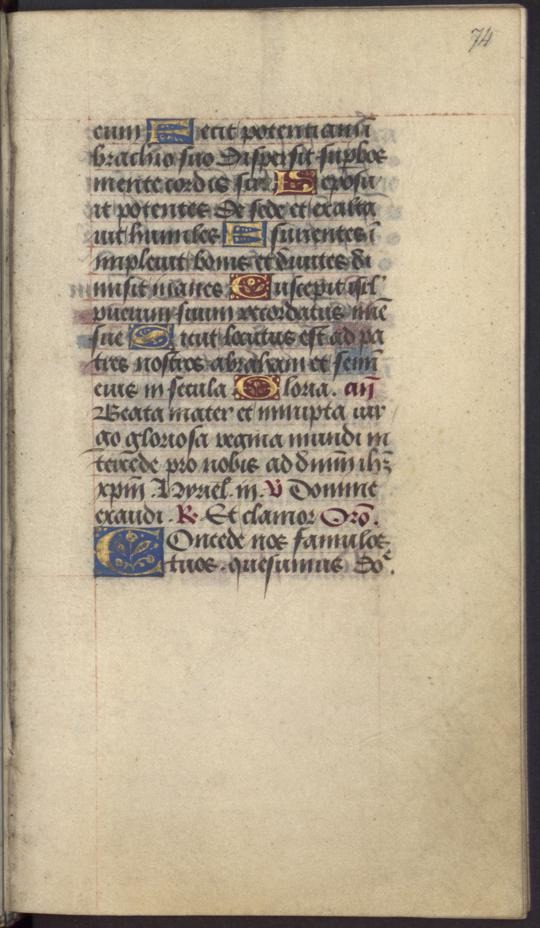 74
eum Fecit potentiam ī
brachio suo Dispersit supbos
mente cordis sui. Deposu
it potentes De sede et exalta
uit humiles Esurientes ī
impleuit bonis et diuites di
misit inanes Suscepit isrl'
puerum suum recordatus mīe
sue Sicut locutus est ad pa
tres nostros abraham et semī
eius in secula Gloria. añ
Beata mater et innupta uir
go gloriosa regina mundi in
tercede pro nobis ad dnm ihz
xpm Kyriel. iii. V Domine
exaudi. R Et clamor Orō.
Concede nos famulos
tuos. quesumus Do'.